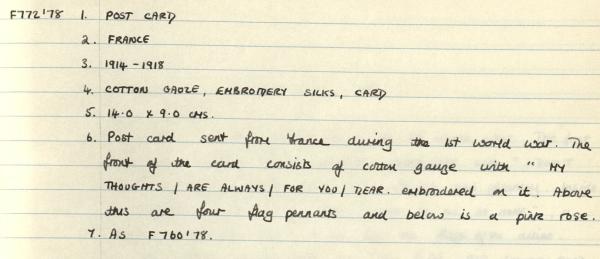 F772'78 1. POST CARD
2. FRANCE
3. 1914-1918
4. COTTON GAUZE, EMBROIDERY SILKS, CARD
5. 14.0 X 9.0 CMS.
6. Post card sent from France during the 1st world war. The
front of the card consists of cotton gauze with "MY
THOUGHTS / ARE ALWAYS / FOR YOU / DEAR. embroidered on it. Above
this are four flag pennants and below is a pink rose.
7. AS F760'78.